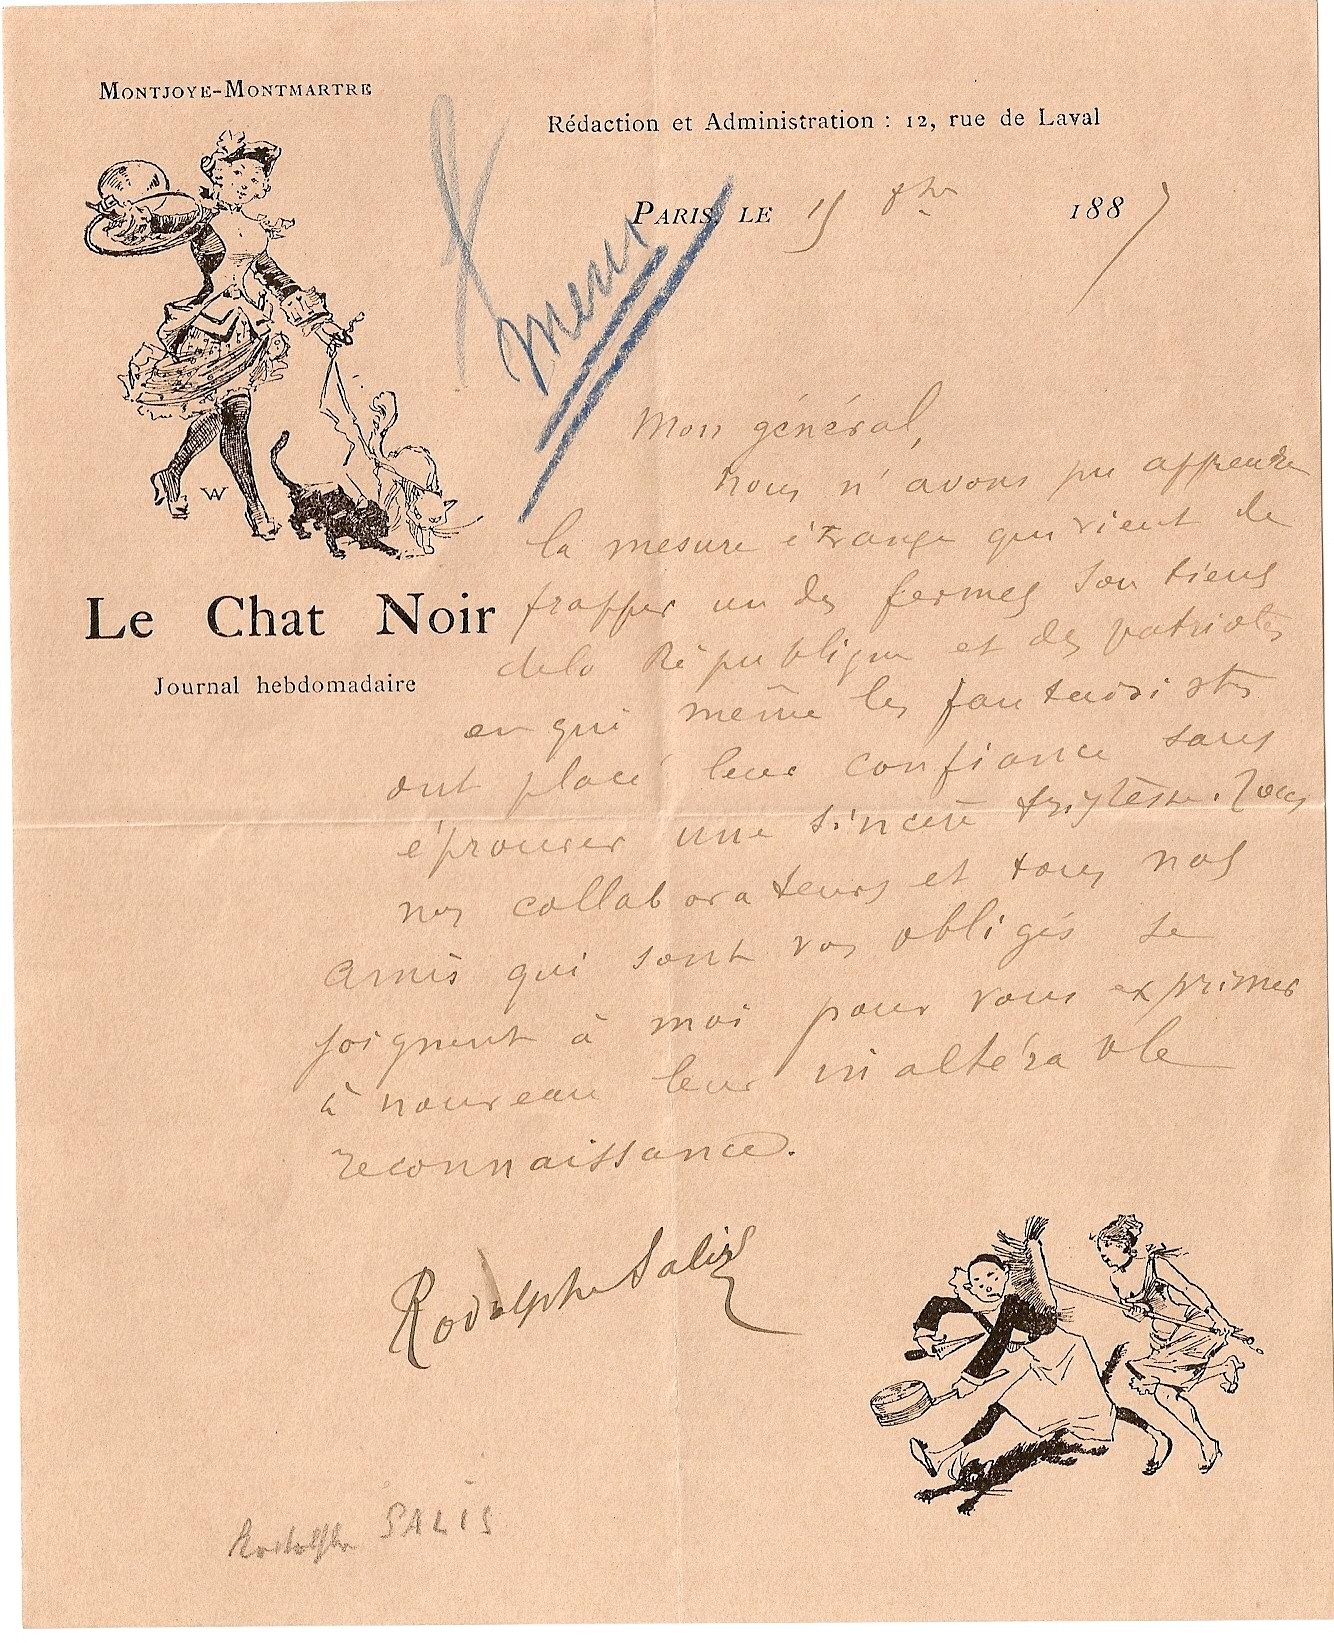 MONTJOYE-MONTMARTRE
Rédaction et Administration : 12, rue de Laval
PARIS, LE 15 8bre 1887
merci
W
Le Chat Noir
Journal hebdomadaire
Mon général,
nous n'avons pu apprendre
la mesure étrange qui vient de
frapper un des fermes soutiens
de la République et des patriotes
en qui même les fantaisistes
ont placé leur confiance sans
éprouver une sincère tristesse. Tous
nos collaborateurs et tous nos
amis qui sont vos obligés se
joignent à moi pour vous exprimer
à nouveau leur inaltérable
reconnaissance.
Rodolphe Salis
Rodolphe SALIS